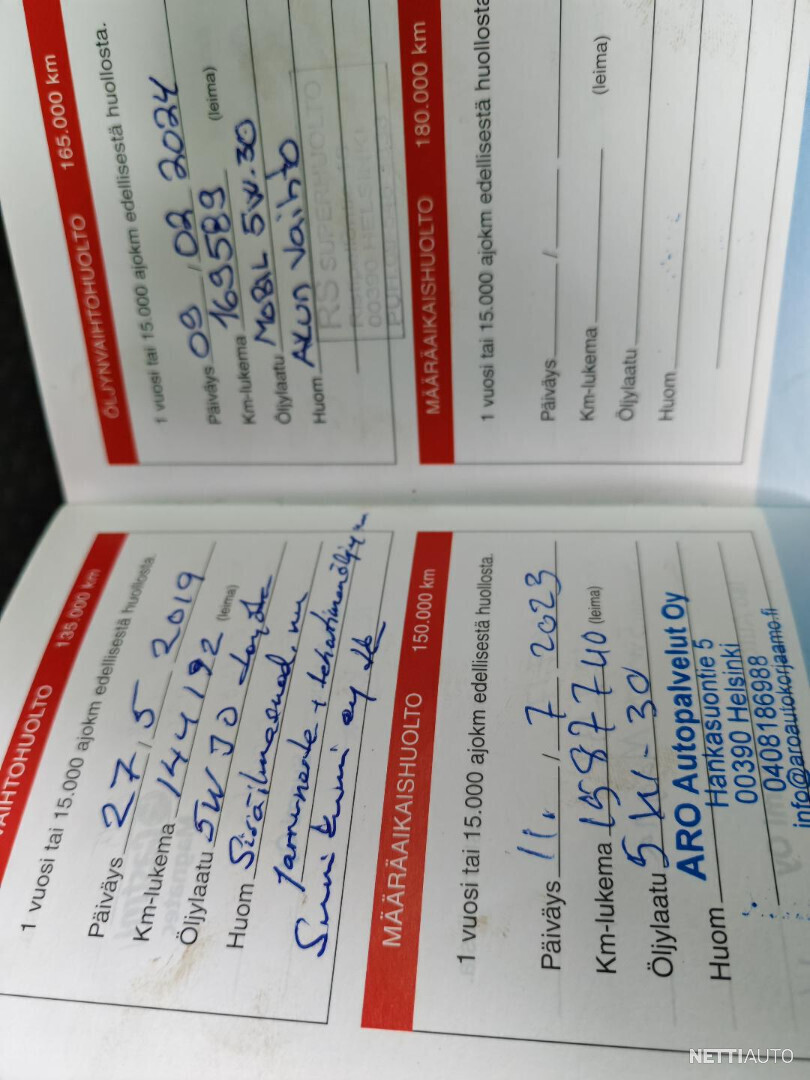 VAIHTOHUOLTO 135.000 km
1 vuosi tai 15.000 ajokm edellisestä huollosta.
Päiväys 27 / 5 2019
Km-lukema 144192 (leima)
Öljylaatu 5W30
Huom
MÄÄRÄAIKAISHUOLTO 150.000 km
1 vuosi tai 15.000 ajokm edellisestä huollosta.
Päiväys 11. / 7 2023
Km-lukema 1587740 (leima)
Öljylaatu 5W-30
Huom
ARO Autopalvelut Oy
Hankasuontie 5
00390 Helsinki
0408186988
info@aroautokorjaamo.fi
ÖLJYNVAIHTOHUOLTO 165.000 km
1 vuosi tai 15.000 ajokm edellisestä huollosta.
Päiväys 09 / 02 2024
Km-lukema 169589 (leima)
Öljylaatu MOBIL 5W.30
Huom AKUN VAIHTO
RS SUPERHUOLTO
00390 HELSINKI
MÄÄRÄAIKAISHUOLTO 180.000 km
1 vuosi tai 15.000 ajokm edellisestä huollosta.
Päiväys /
Km-lukema (leima)
Öljylaatu
Huom
NETTIAUTO